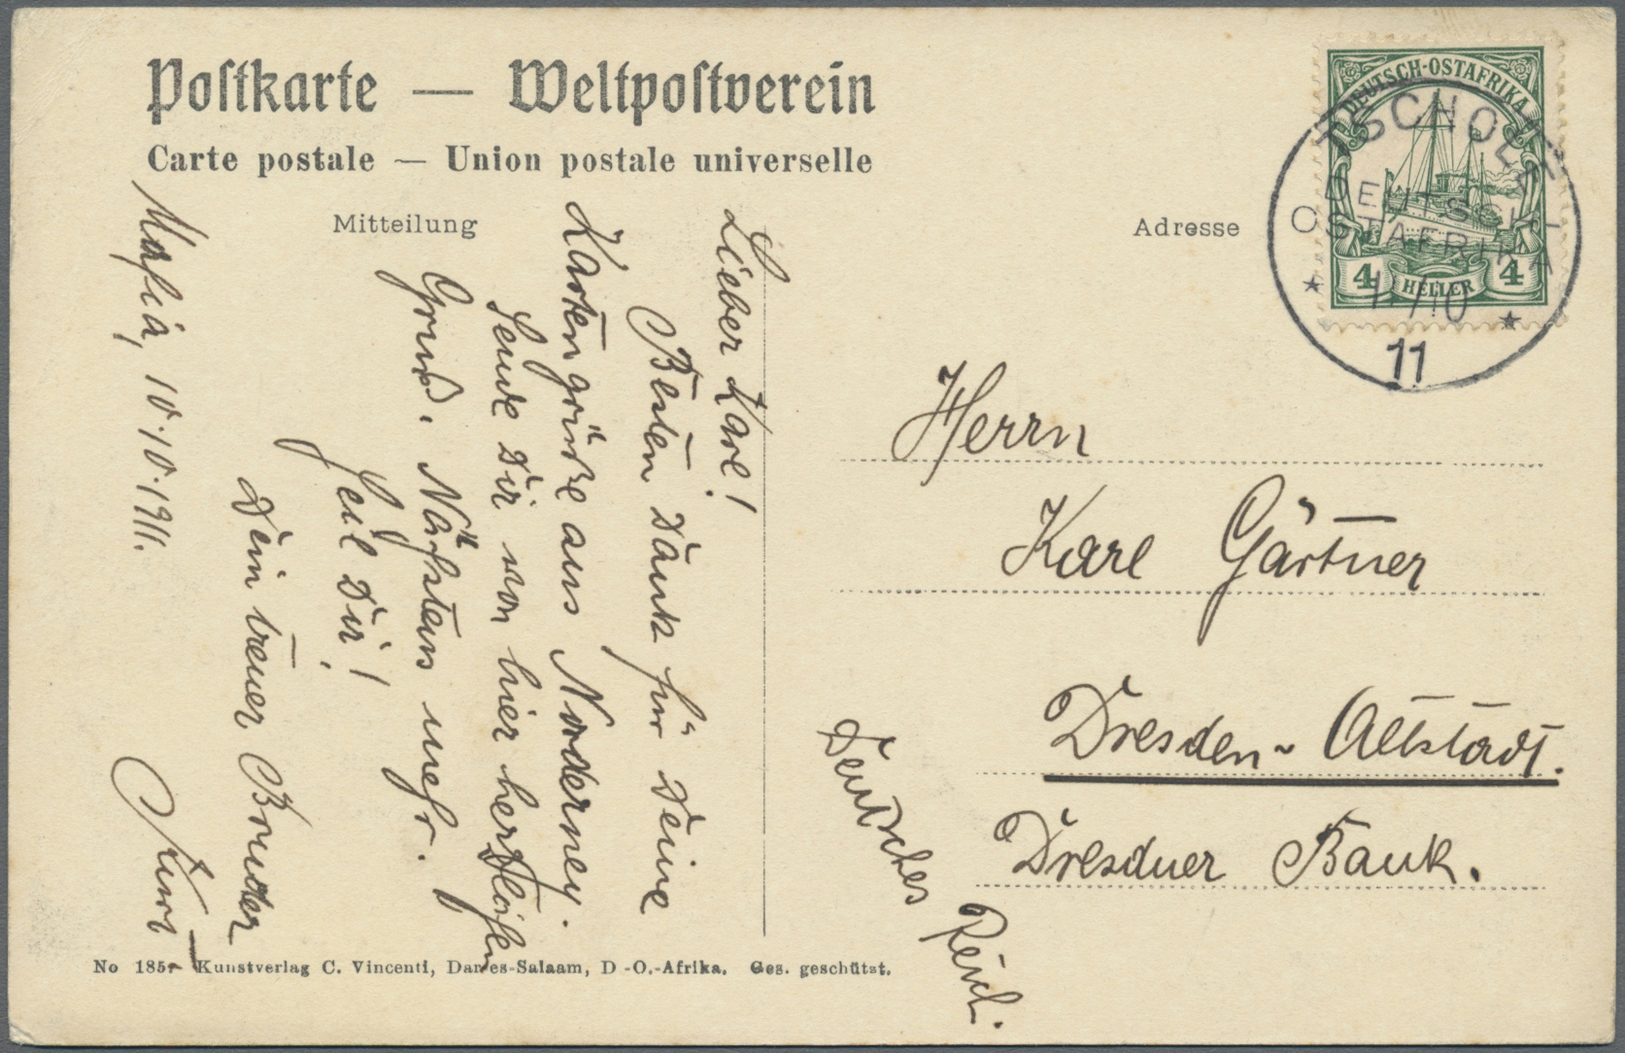 Postkarte — Weltpostverein
Carte postale — Union postale universelle
Mitteilung
Adresse
DEUTSCH-OSTAFRIKA
4 HELLER 4
TSCHOLE
DEUTSCH-
OSTAFRIKA
* /10 *
11
Lieber Karl!
Besten Dank für Deine
Kartengrüße aus Norderney.
Sende Dir von hier herzlichen
Gruß. Nächstens mehr.
Heil Dir!
Dein treuer Bruder
Kurt
Mafia, 10.10.1911.
Herrn
Karl Gärtner
Dresden-Altstadt.
Dresdner Bank.
Deutsches Reich.
No 185. Kunstverlag C. Vincenti, Dar-es-Salaam, D.-O.-Afrika. Ges. geschützt.